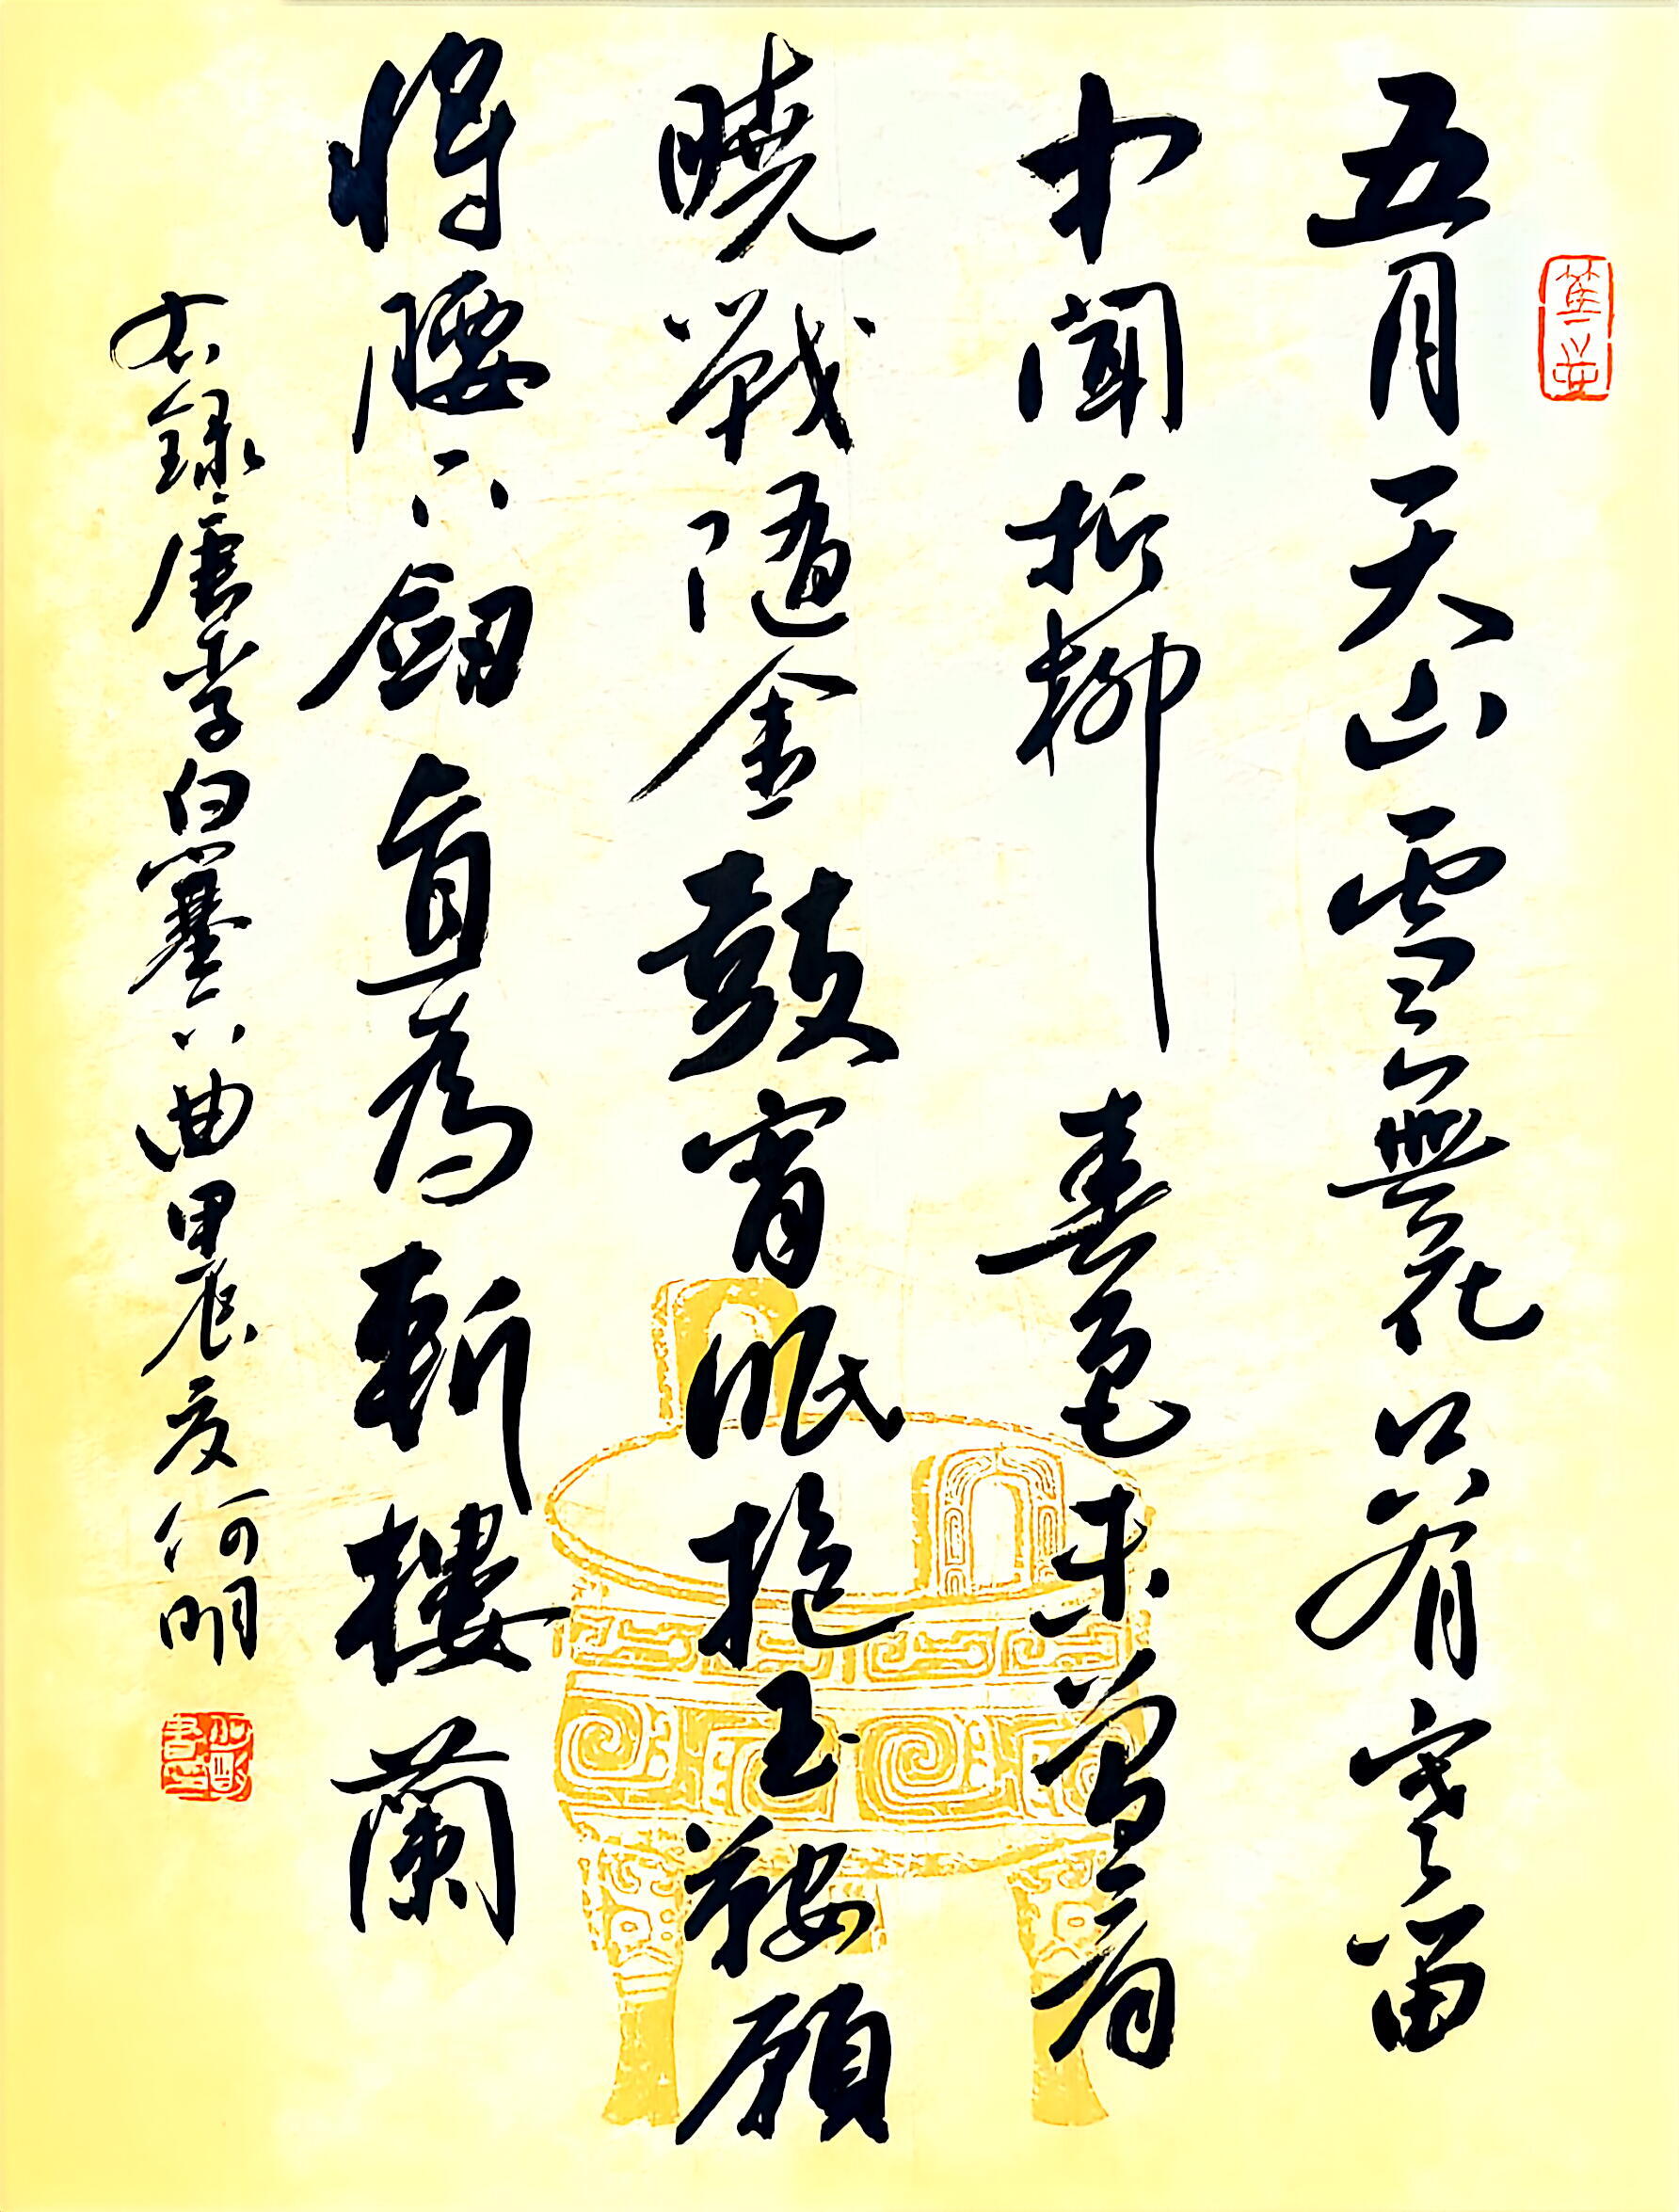 五月天山雪無花只有寒笛
中聞折柳春色未曾看
曉戰隨金鼓宵眠抱玉鞍願
將腰下劒直為斬樓蘭
右録唐李白塞下曲甲辰夏何明